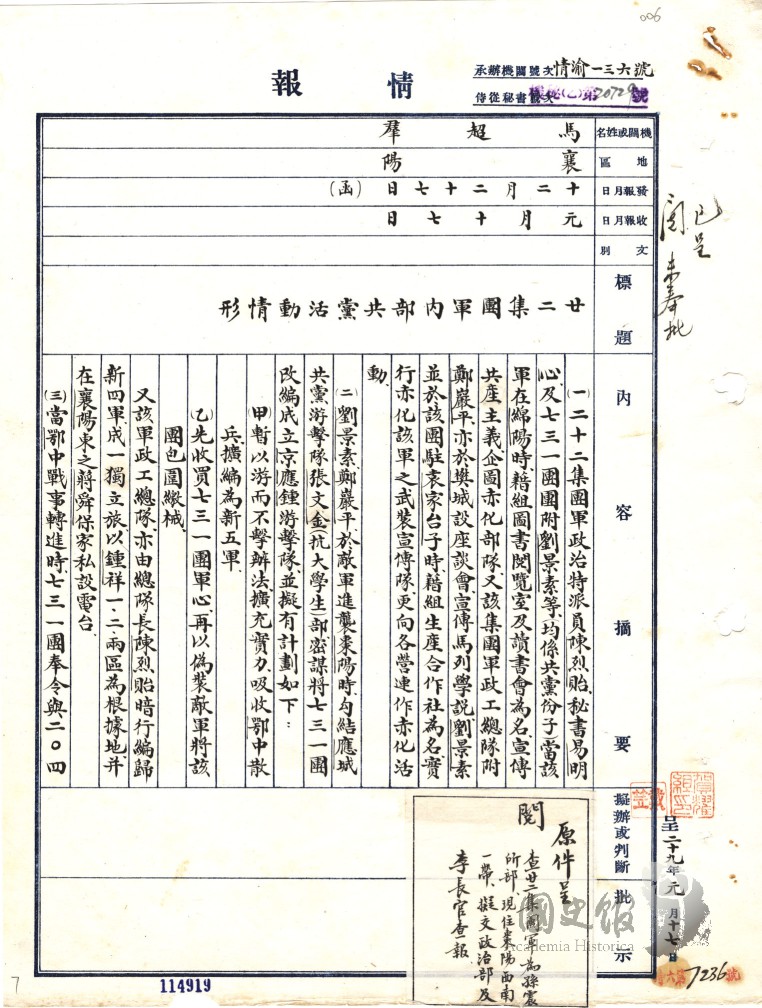 006
情報
承辦機關號次情渝一三六號
侍從秘書號次
20729號
機關或姓名
馬超羣
地區
襄陽
發報月日
十二月二十七日(函)
收報月日
元月十七日
文別
標題
廿二集團軍內部共黨活動情形
內容摘要
(一)二十二集團軍政治特派員陳烈貽、秘書易明
心及七三一團團附劉景素等、均係共黨份子、當該
軍在綿陽時、藉組圖書閱覽室及讀書會為名、宣傳
共產主義、企圖赤化部隊、又該集團軍政工總隊附
鄭巖平、亦於樊城設座談會、宣傳馬列學說、劉景素
並於該團駐袁家台子時、藉組生產合作社為名、實
行赤化該軍之武裝宣傳隊、更向各營連作赤化活
動、
(二)劉景素、鄭巖平於敵軍進襲棗陽時、勾結應城
共黨游擊隊張文金、抗大學生一部、密謀將七三一團
改編成立京應鍾游擊隊、並擬有計劃如下：
(甲)暫以游而不擊辦法、擴充實力、吸收鄂中散
兵、擴編為新五軍、
(乙)先收買七三一團軍心、再以偽裝敵軍將該
團包圍繳械、
又該軍政工總隊、亦由總隊長陳烈貽暗行編歸
新四軍、成一獨立旅、以鍾祥一、二、兩區為根據地、并
在襄陽東之蔣舜保家私設電台、
(三)當鄂中戰事轉進時、七三一團奉令與二〇四
擬辦或判斷
批示
原件呈
閱
查廿二集團軍為孫震
所部、現住棗陽西南
一帶、擬交政治部及
李長官查報
已呈
閱 未奉批
賀耀組印
呈二十九年元月十七日
國史館
Academia Historica
六第7236號
7
114919